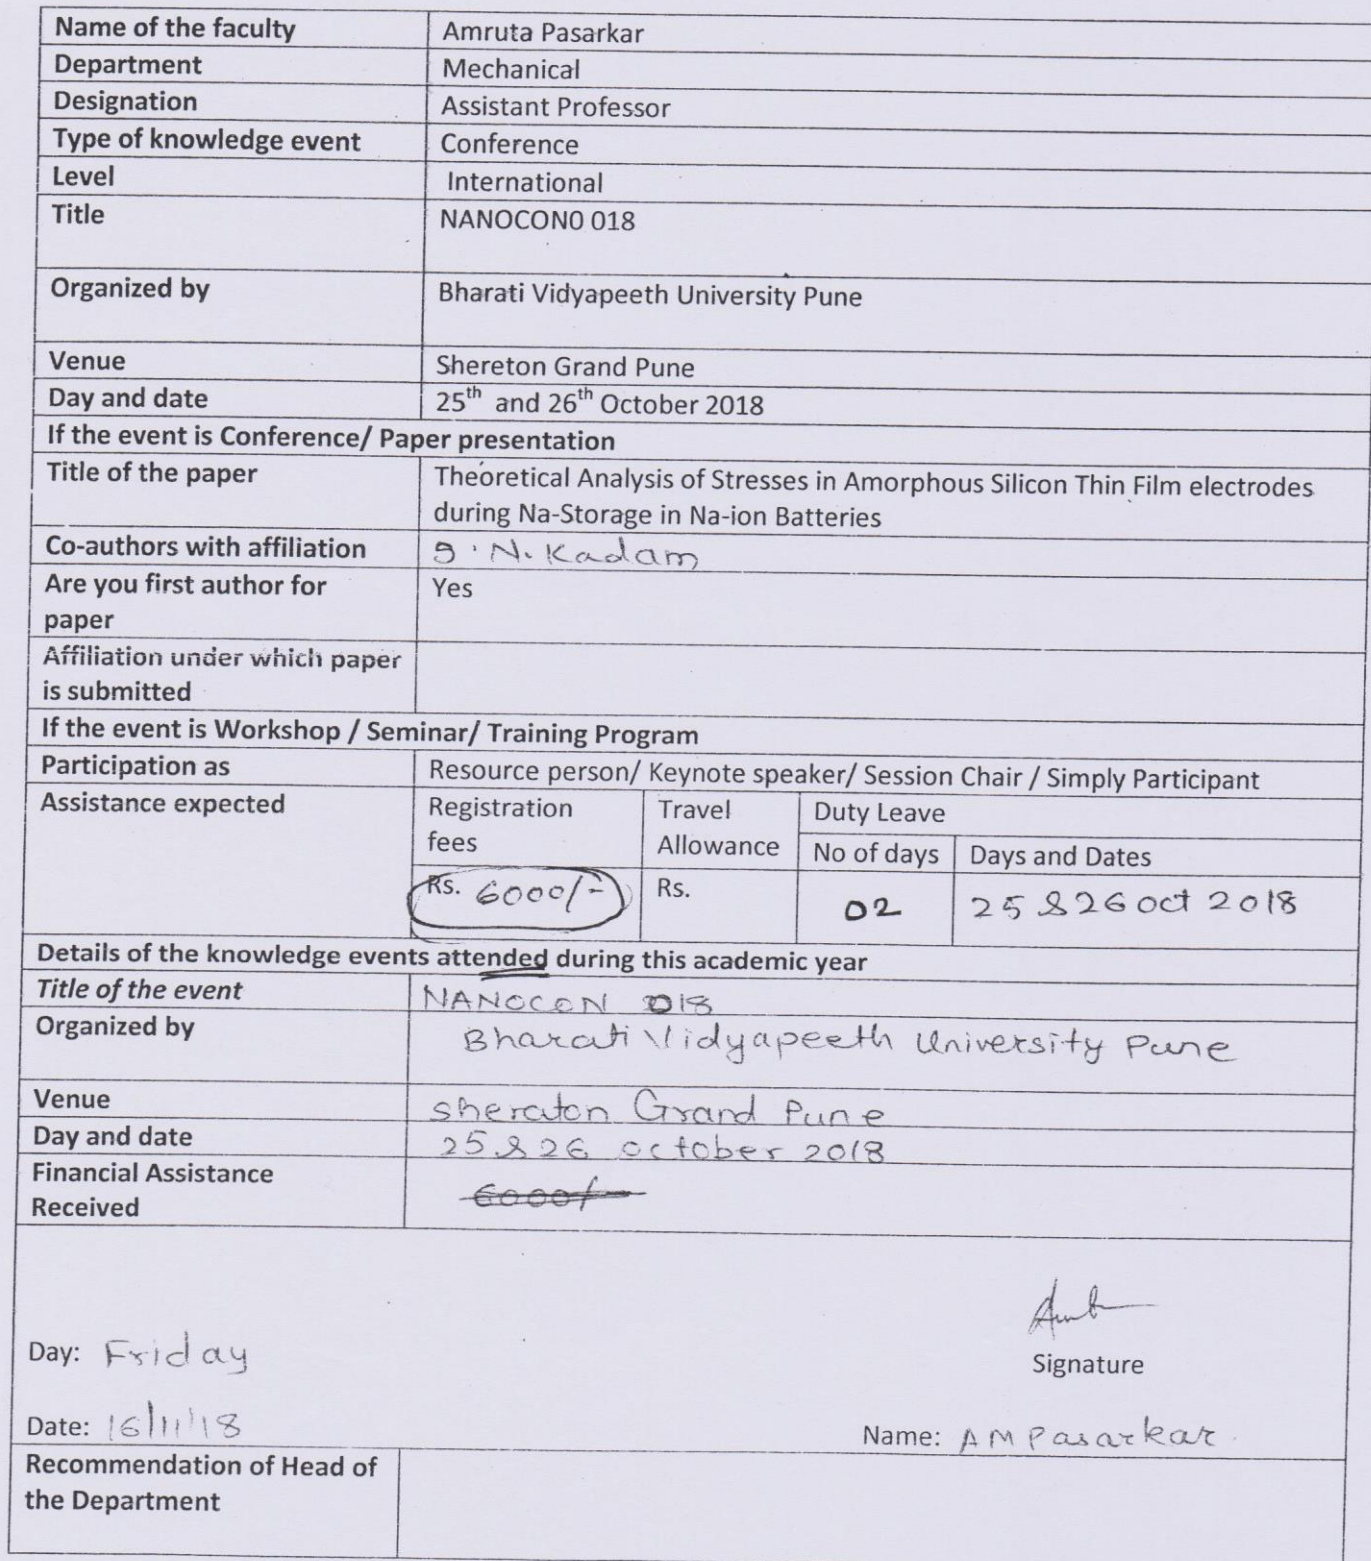 Name of the faculty Amruta Pasarkar
Department Mechanical
Designation Assistant Professor
Type of knowledge event Conference
Level International
Title NANOCON0 018
Organized by Bharati Vidyapeeth University Pune
Venue Shereton Grand Pune
Day and date 25th and 26th October 2018
If the event is Conference/ Paper presentation
Title of the paper Theoretical Analysis of Stresses in Amorphous Silicon Thin Film electrodes
during Na-Storage in Na-ion Batteries
Co-authors with affiliation N. Kadam
Are you first author for Yes
paper
Affiliation under which paper
is submitted
If the event is Workshop / Seminar/ Training Program
Participation as Resource person/ Keynote speaker/ Session Chair / Simply Participant
Assistance expected Registration Travel Duty Leave
fees Allowance No of days Days and Dates
Rs. 6000/- Rs. 02 25 & 26 oct 2018
Details of the knowledge events attended during this academic year
Title of the event NANOCON 018
Organized by Bharati Vidyapeeth University Pune
Venue sheraton Grand Pune
Day and date 25 & 26 october 2018
Financial Assistance 6000/-
Received
Day: Friday
Signature
Date: 16/11/18
Name: AM Pasarkar
Recommendation of Head of
the Department